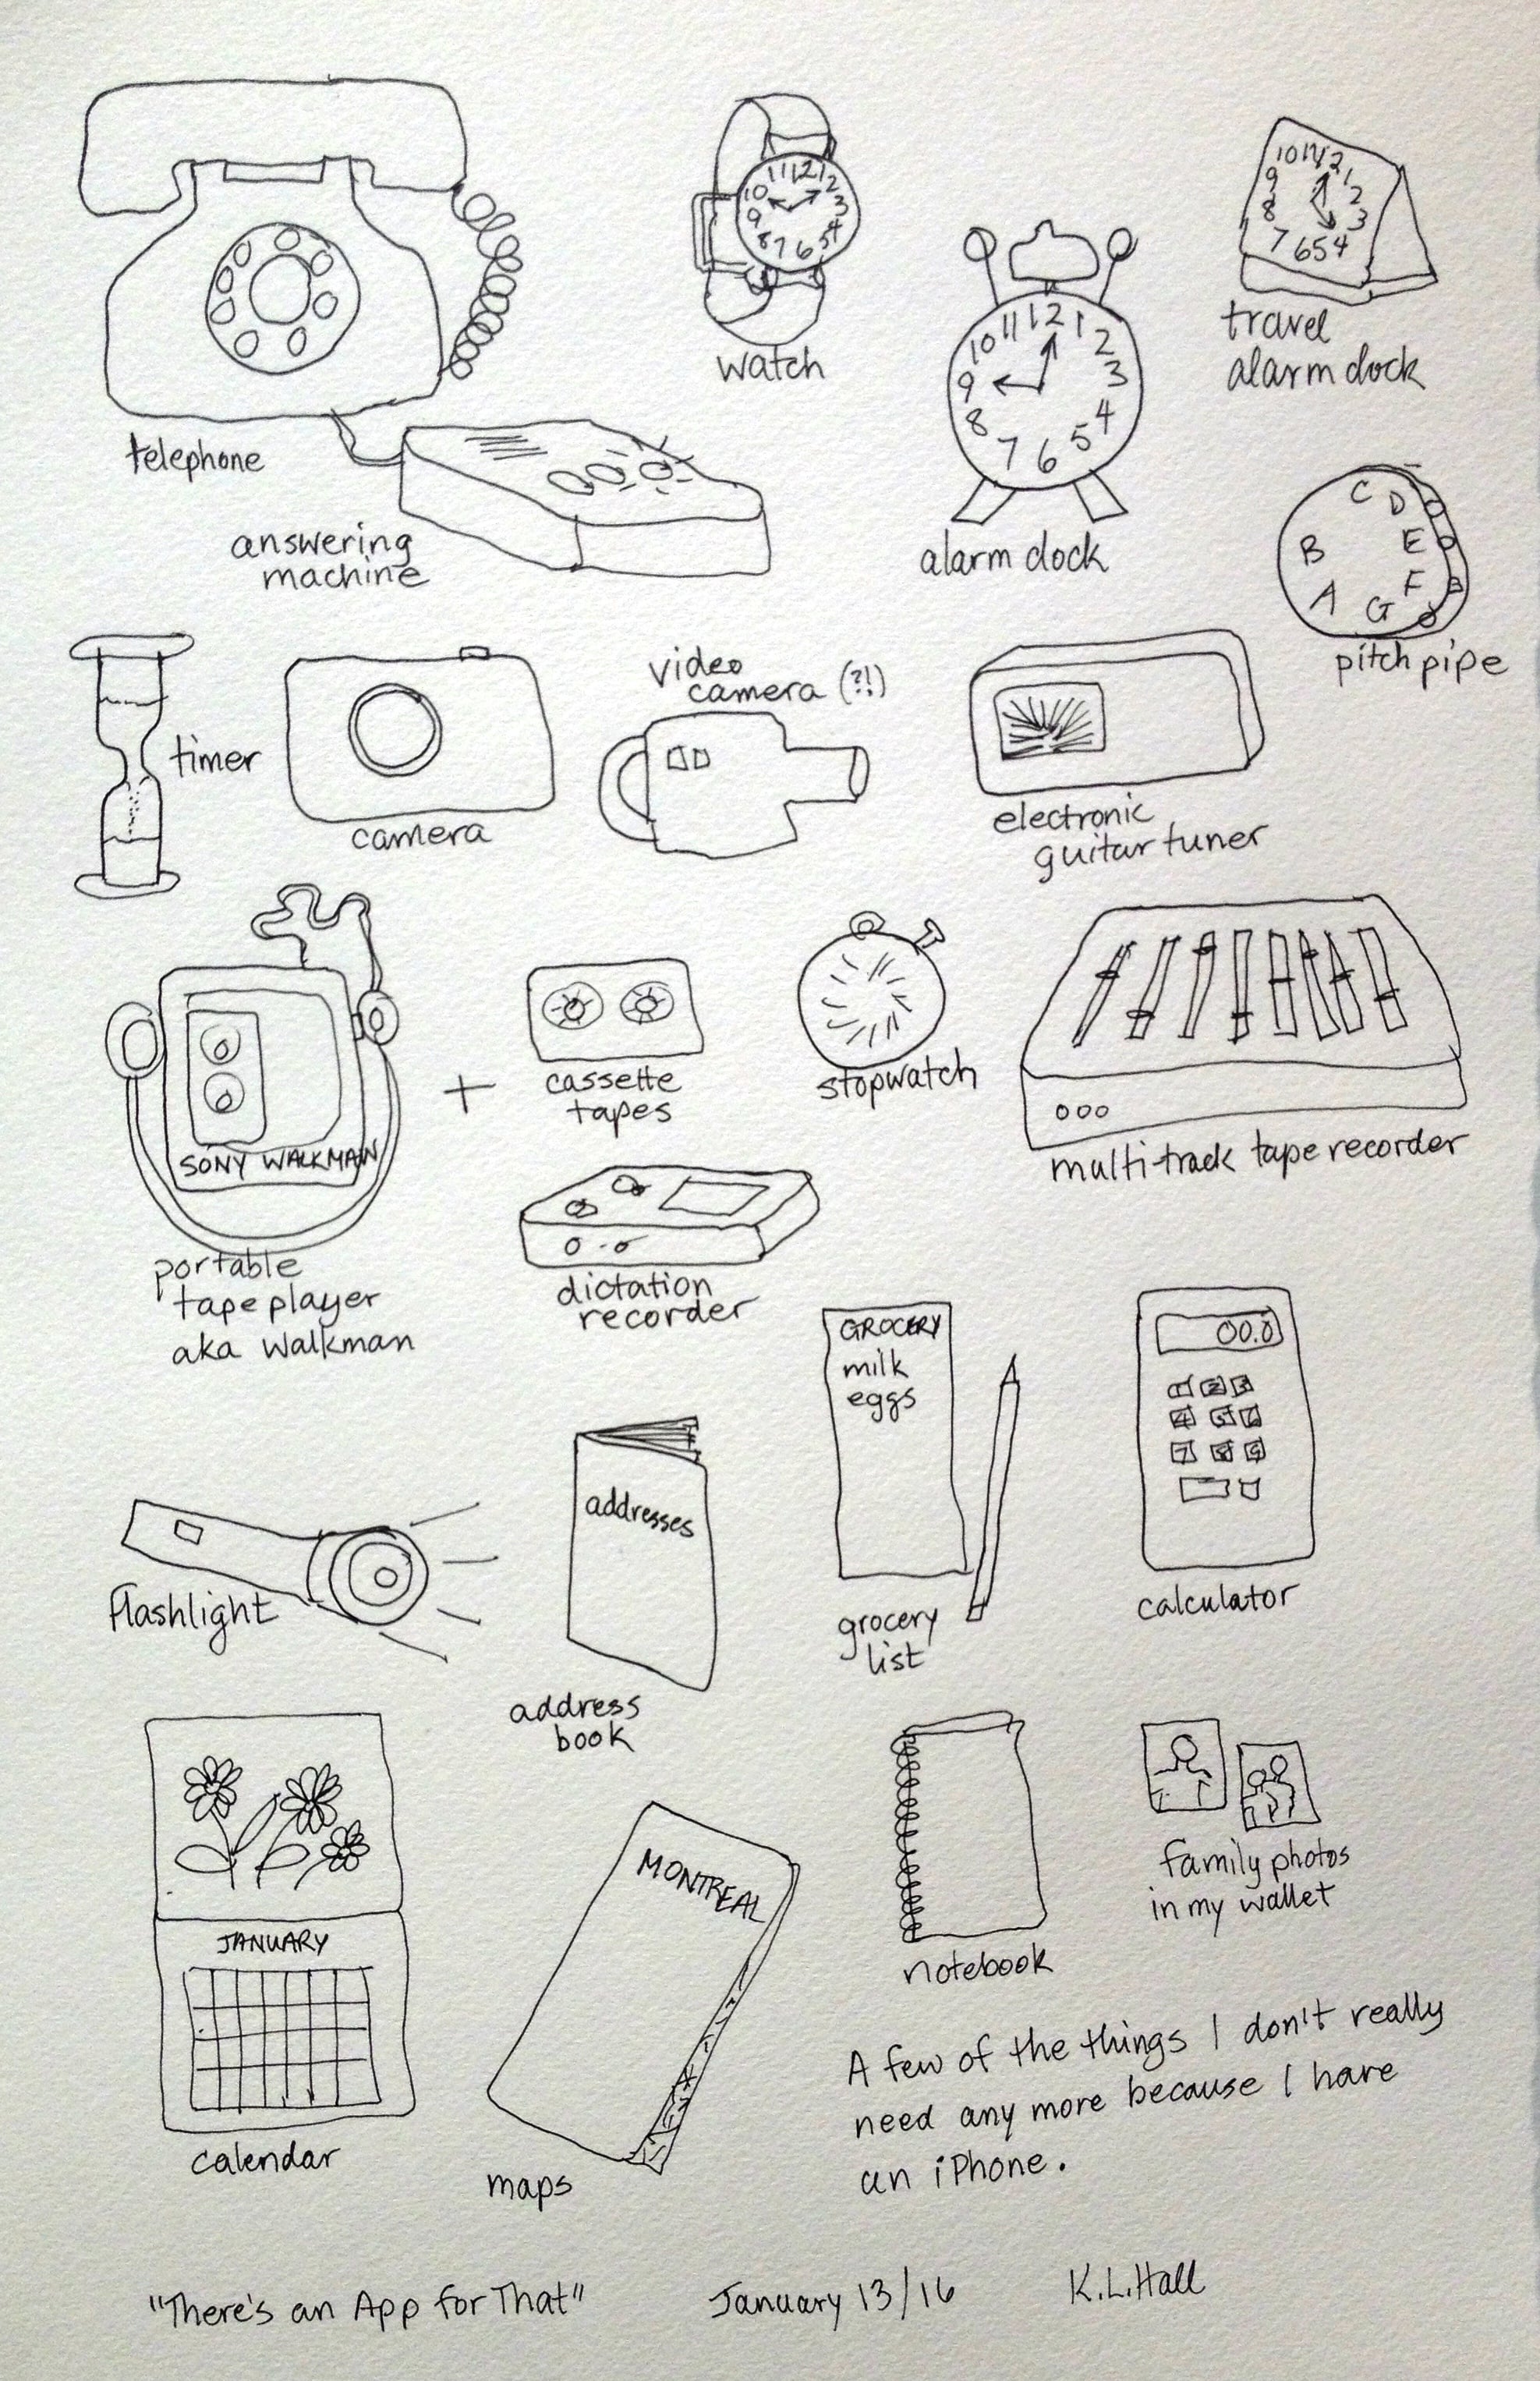 10 11 12 1 2 3 4 5 6 7 8 9
watch
10 11 12 1 2 3 4 5 6 7 8 9
travel
alarm clock
telephone
10 11 12 1 2 3 4 5 6 7 8 9
alarm clock
answering
machine
C D E F G A B
pitch pipe
timer
camera
video
camera (?!)
electronic
guitar tuner
SONY WALKMAN
portable
tape player
aka walkman
+
cassette
tapes
stopwatch
multi-track tape recorder
dictation
recorder
GROCERY
milk
eggs
grocery
list
00.0
1 2 3
4 5 6
7 8 9
calculator
flashlight
addresses
address
book
JANUARY
calendar
MONTREAL
maps
notebook
family photos
in my wallet
A few of the things I don't really
need any more because I have
an iPhone.
"There's an App for That"
January 13/16
K.L.Hall